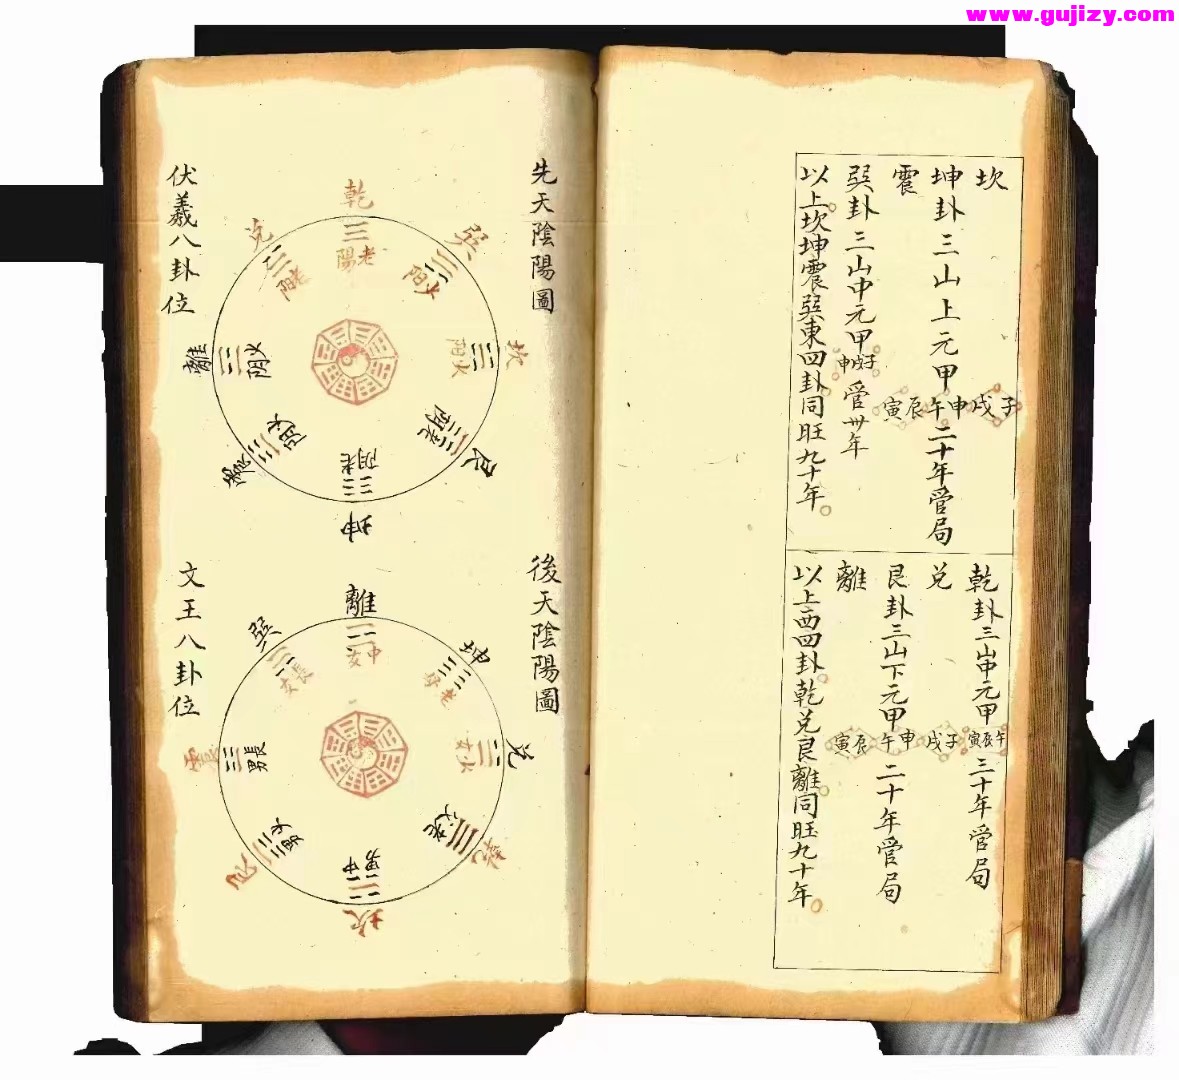 www.gujizy.com
坎
坤卦三山上元甲子戌申午辰寅二十年管局
震
巽卦三山中元甲子戌申管卅年
以上坎坤震巽東四卦同旺九十年
乾卦三山中元甲午辰寅三十年管局
兌
艮卦三山下元甲子戌申午辰寅二十年管局
離
以上西四卦乾兌艮離同旺九十年
先天陰陽圖
乾
三
老陽
巽
火阳
坎
火阳
艮
老阴
坤
老阴
震
火阴
離
火阴
兌
老阳
伏羲八卦位
後天陰陽圖
離
中女
坤
老母
兌
火女
乾
老父
坎
中男
艮
少男
震
長男
巽
長女
文王八卦位